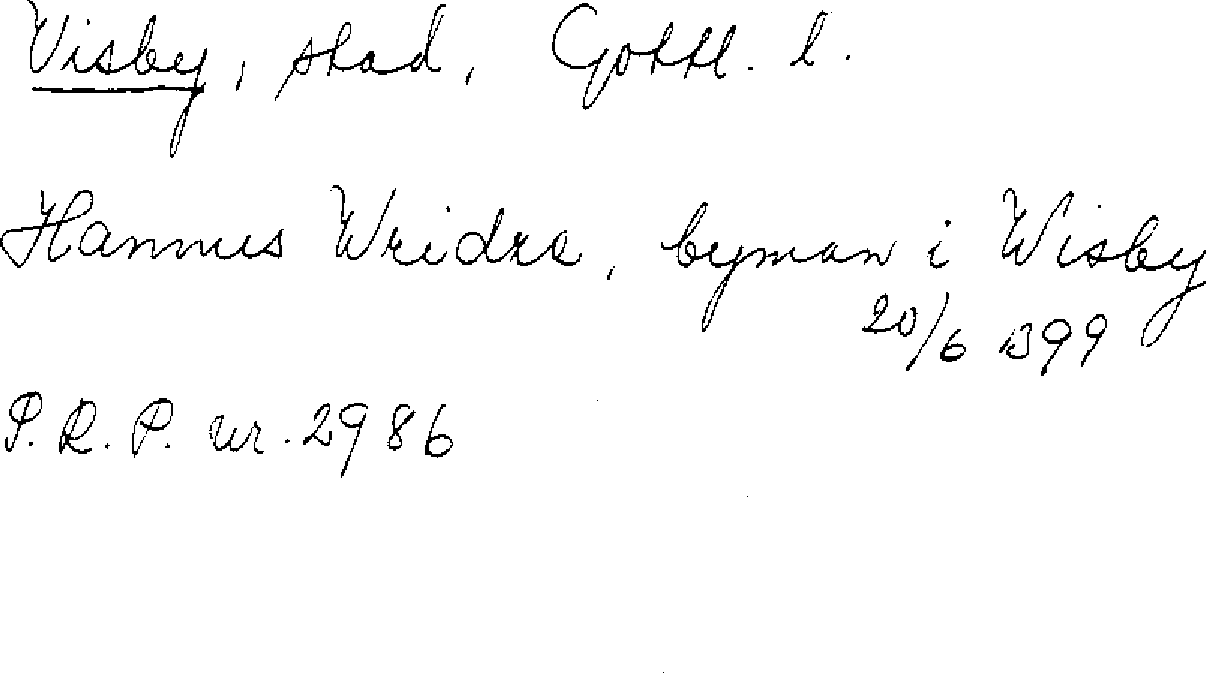 Visby, stad, Gottl. l.
Hannus Wridze, byman i Wisby
20/6 1399
P. R. P. nr. 2986